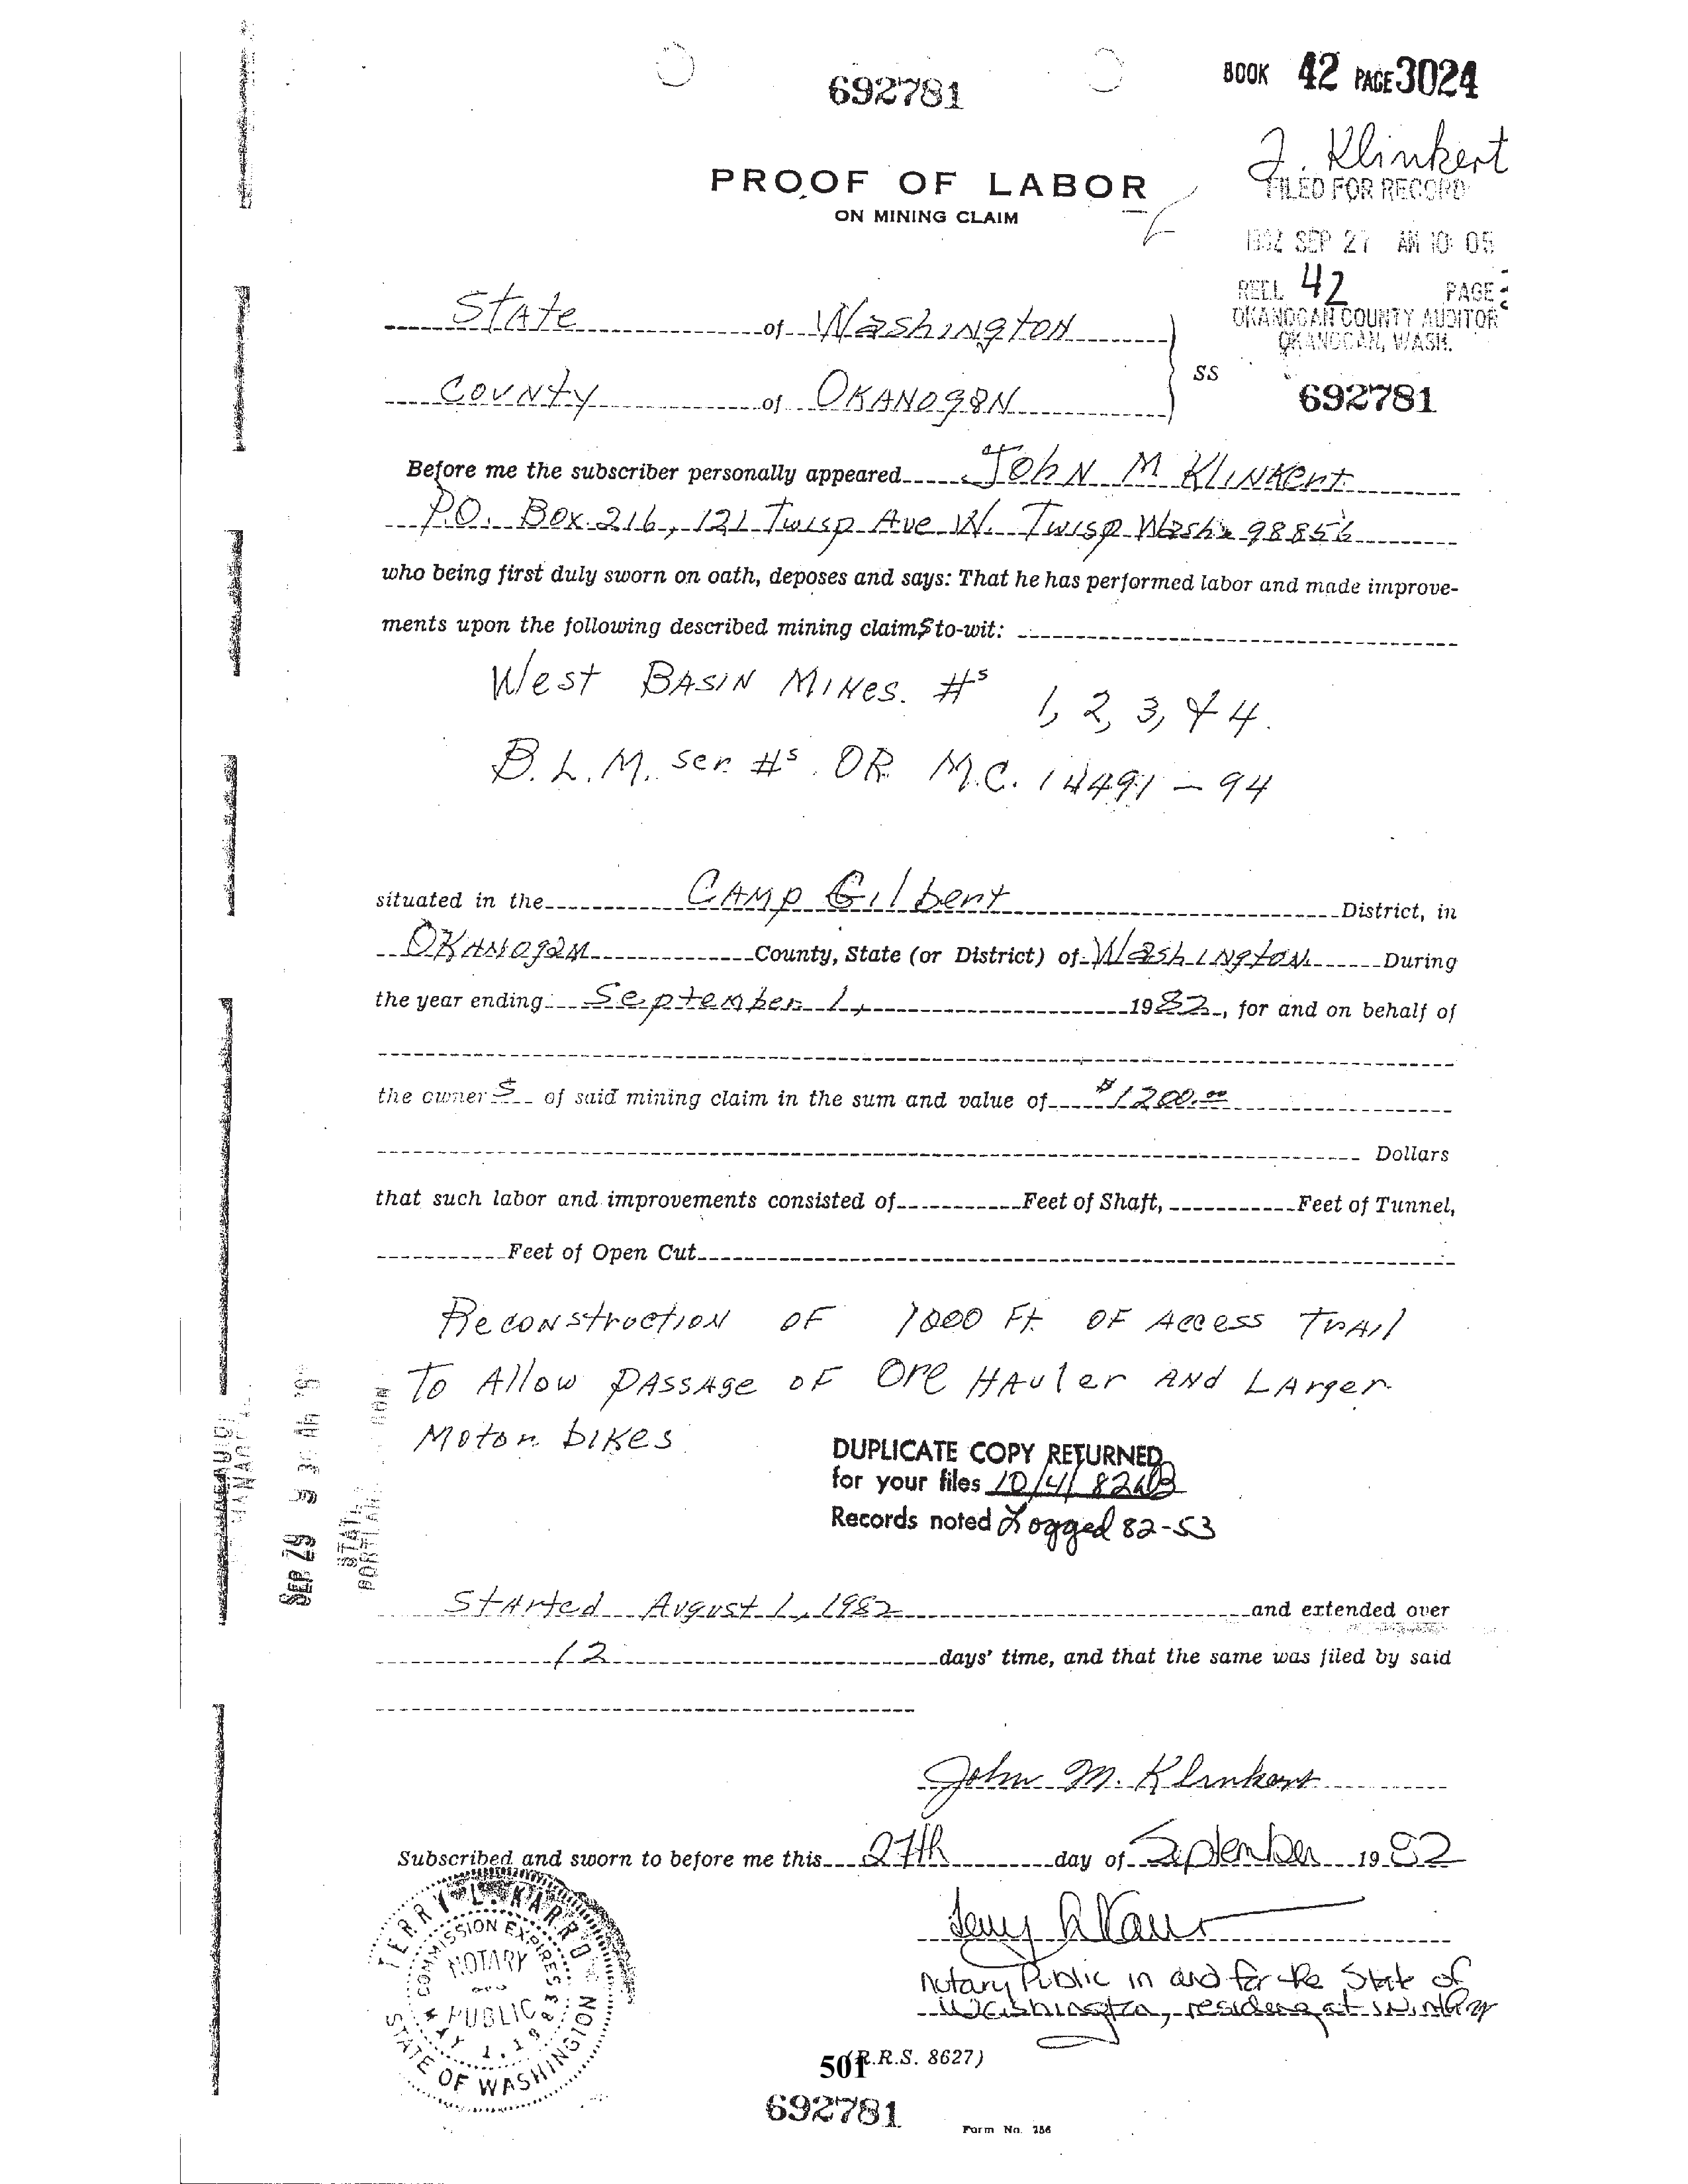 BOOK 42 PAGE 3024
692781
J. Klinkert
PROOF OF LABOR
FILED FOR RECORD
ON MINING CLAIM
1982 SEP 27 AM 10:05
REEL 42 PAGE
OKANOGAN COUNTY AUDITOR
OKANOGAN, WASH.
State of Washington
SS
County of Okanogan
692781
Before me the subscriber personally appeared John M Klinkert
P.O. Box 216, 121 Twisp Ave W. Twisp Wash. 98856
who being first duly sworn on oath, deposes and says: That he has performed labor and made improve-
ments upon the following described mining claims to-wit:
West Basin Mines. #s 1, 2, 3, & 4.
B.L.M. ser. #s. OR M.C. 14491 – 94
situated in the Camp Gilbert District, in
Okanogan County, State (or District) of Washington During
the year ending September 1, 1982, for and on behalf of
the owner s of said mining claim in the sum and value of $1200.00
Dollars
that such labor and improvements consisted of Feet of Shaft, Feet of Tunnel,
Feet of Open Cut
Reconstruction of 1000 Ft. of Access Trail
To Allow passage of Ore Hauler and Larger
Motor bikes
DUPLICATE COPY RETURNED
for your files 10/4/82
Records noted Logged 82-53
SEP 29 9 30 AM
Started August 1, 1982 and extended over
12 days' time, and that the same was filed by said
John M. Klinkert
Subscribed and sworn to before me this 27th day of September 1982
TERRY L. KARRO
COMMISSION EXPIRES
NOTARY
PUBLIC
MAY 1, 1983
STATE OF WASHINGTON
Notary Public in and for the State of
Washington, residing at Winthrop
501 (R.R.S. 8627)
692781
Form No. 256